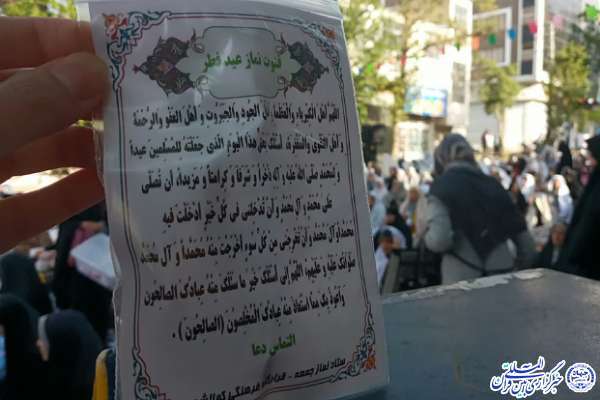 قنوت نماز عید فطر
اللهم أهل الکبریاء والعظمة، أهل الجود والجبروت و أهل العفو والرحمة
و أهل التقوی والمغفرة، اسئلک بحق هذا الیوم الذی جعلته للمسلمین عیدا
و لمحمد صلی الله علیه و آله ذخرا و شرفا و کرامتا و مزیدا، ان تصلی
علی محمد و آل محمد و أن تدخلنی فی کل خیر أدخلت فیه
محمدا و آل محمد و أن تخرجنی من کل سوء أخرجت منه محمدا و آل محمد
صلواتک علیه و علیهم، اللهم إنی اسئلک خیر ما سئلک عبادک الصالحون
و أعوذ بک مما استعاذ منه عبادک المخلصون (الصالحون).
التماس دعا
ستاد نماز جمعه -
خبرگزاری بین المللی قرآن